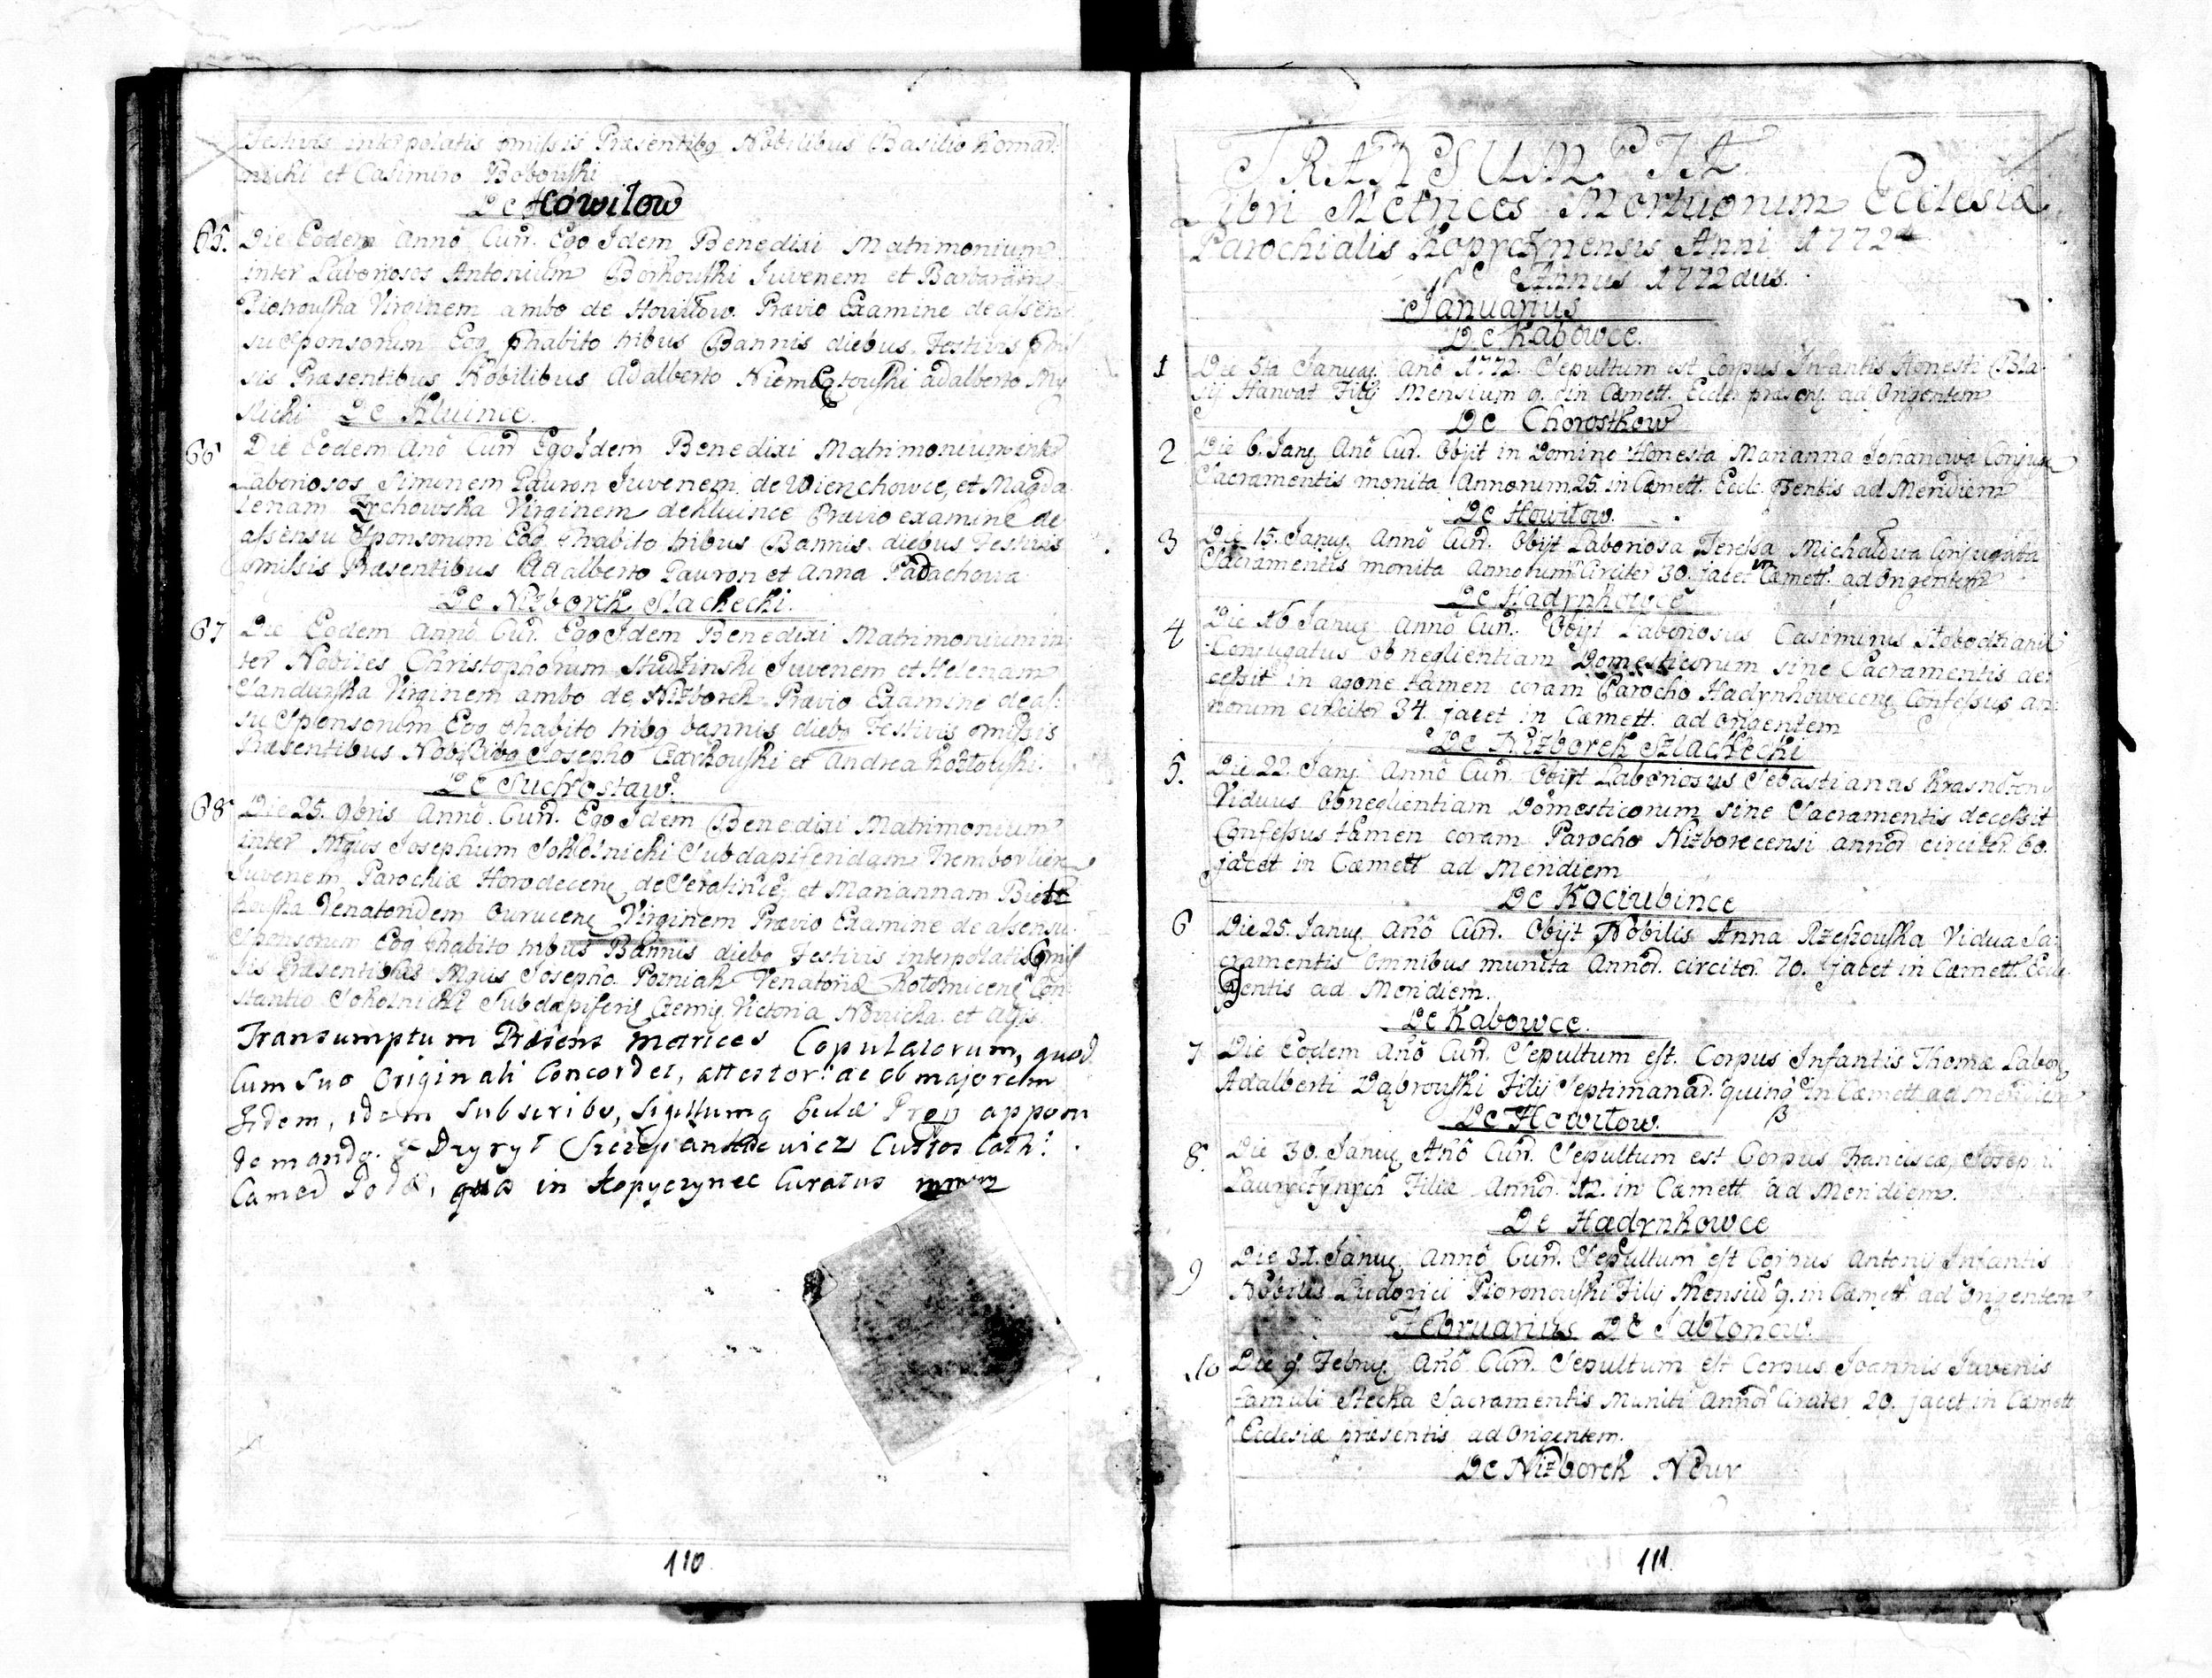 Festivis interpolatis omissis Præsentibq Nobilibus Basilio Komar
nicki et Casimiro Bobowski
De Howilow
65. Die Eodem Annô Cur. Ego Idem Benedixi Matrimonium
inter Laboriosos Antonium Borkowski Juvenem et Barbaram
Piotrowska Virginem ambo de Howilow. Prævio Examine de assen
su Sponsorum Eoq phabito tribus Bannis diebus Festivis omis
sis Præsentibus Nobilibus Adalberto adalberto My
slicki De Kluince.
66 Die Eodem Anô Cur Ego Idem Benedixi Matrimonium inter
Laboriosos Simonem Gawron Juvenem de Wienchowce, et Magda
lenam Zychowska Virginem de Kluince Prævio examine de
assensu Sponsorum Eoq phabito tribus Bannis diebus Festivis
omissis Præsentibus Adalberto Gawron et Anna Padachowa
De Nizborek Slachecki.
67 Die Eodem Annô Cur. Ego Idem Benedixi Matrimonium in
ter Nobiles Christophorum Studzinski Juvenem et Helenam
Sandurska Virginem ambo de Nizborek Prævio Examine de as
su Sponsorum Eoq phabito tribq bannis diebq Festivis omissis
Præsentibus Nobilibq Josepho Czarkowski et Andrea Kozlowski.
De Suchostaw.
68 Die 25. 9bris Annô Cur. Ego Idem Benedixi Matrimonium
inter Mgus Josephum Sokolnicki Subdapiferidam
Juvenem Parochiæ de et Mariannam
Venatoridem Virginem Prævio Examine de assensu
Sponsorum Eoq phabito tribus Bannis diebq Festivis interpolatis omis
sis Præsentibus Mgus Josepho Pozniak Venatoriæ Con
stantio Sokolnicki Subdapiferi Victoria Nowicka et Alijs
Transumptum Præsens matrices Copulatorum, quod
Cum Suo Originali Concordet, attestor: ac ob majorem
Fidem, idem Subscribo, Sigillumq
Custos Cath:
Camed in Kopyczynce Curatus mmm
110
TRANSUMPTA
Libri Metrices Mortuorum Ecclesiæ
Parochialis Kopyczynensis Anni 1772
Annus 1772dus.
Januarius
De Kabowce.
1 Die 5ta Januar. anô 1772. Sepultum est Corpus Infantis Honesti Bla
sij Harwat Filij Mensium 9. in Cæmett. Eccle præsen. ad Orientem
De Chorostkow
2 Die 6. Janq Anô Cur. Obijt in Domino Honesta Marianna Conjux
Sacramentis monita Annorum 25. in Cæmett. Eccle. psentis ad Meridiem
De Howilow.
3 Die 15. Janq. Annô Cur. Obijt Laboriosa Teressa Michalowa Conjugata
Sacramentis monita Annorum Circiter 30. jacet in Cæmett. ad Orientem
De Hadynkowce
4 Die 16 Janua Annô Cur. Obijt Laboriosus Casimirus
Conjugatus ob neglientiam Domesticorum sine Sacramentis de
cessit in agone tamen coram Parocho Confessus an
norum circiter 34. jacet in Cæmett. ad Orientem
De Nizborek Szlachecki
5. Die 22. Janq. Annô Cur. Obijt Laboriosus Sebastianus
Viduus ob neglientiam Domesticorum sine Sacramentis decessit
Confessus tamen coram Parocho Nizborecensi annor. circiter 60.
jacet in Cæmett ad Meridiem
De Kociubince
6 Die 25. Janua. Anô Cur. Obijt Nobilis Anna Rzeszowska Vidua Sa
cramentis Omnibus munita Annor. circiter 70. jacet in Cæmett. Eccle
psentis ad Meridiem.
De Kabowce.
7 Die Eodem Anô Cur. Sepultum est. Corpus Infantis Thomæ Labor
Adalberti Dąbrowski Filij Septimanar. in Cæmett ad Meridiem
De Howilow.
8. Die 30. Janua Anô Cur. Sepultum est Corpus Franciscæ, Josephi
Filiæ Annor. 12. in Cæmett ad Meridiem.
De Hadynkowce
9 Die 31. Janua. Annô Cur. Sepultum est Corpus Antonij Infantis
Nobilis Ludovici Filij Mensiū 9. in Cæmett ad Orientem
Februarius De Jablonow.
10 Die 9. Febru. Anô Cur. Sepultum est Corpus Joannis Juvenis
Famuli Stecka Sacramentis Muniti Annor Circiter 20. jacet in Cæmett
Ecclesiæ præsentis ad Orientem.
De Nizborek Now
111.